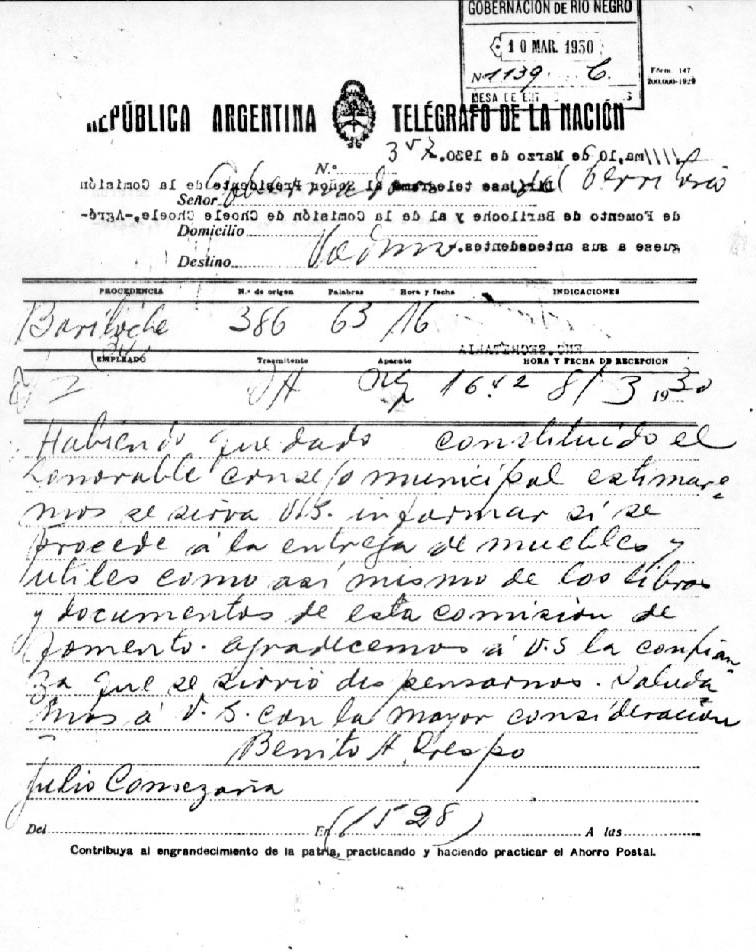 GOBERNACIÓN DE RIO NEGRO
10 MAR. 1930
Nº 1139 C.
MESA DE
Fórm. 147
REPÚBLICA ARGENTINA TELÉGRAFO DE LA NACIÓN
ma, 10 de Marzo de 1930.
N.º
telegrama al Señor Presidente de la Comisión
Señor Gobernador del Territorio
de Fomento de Bariloche y al de la Comisión de Choele Choele,-Agré-
Domicilio
guese a sus antecedentes.
Destino Viedma
PROCEDENCIA N.º de origen Palabras Hora y fecha INDICACIONES
Bariloche 386 63 16
EMPLEADO Trasmitente Aparato HORA Y FECHA DE RECEPCION
2 16 42 8/3 1930
Habiendo quedado constituido el
Honorable consejo municipal estimare-
mos se sirva V.S. informar si se
procede á la entrega de muebles y
utiles como asi mismo de los libros
y documentos de esta comision de
fomento. agradecemos á V.S la confian
za que se sirvió dispensarnos. Saluda
mos á V.S. con la mayor consideración
Benito A Crespo
Julio
Del En (1528) A las
Contribuya al engrandecimiento de la patria, practicando y haciendo practicar el Ahorro Postal.